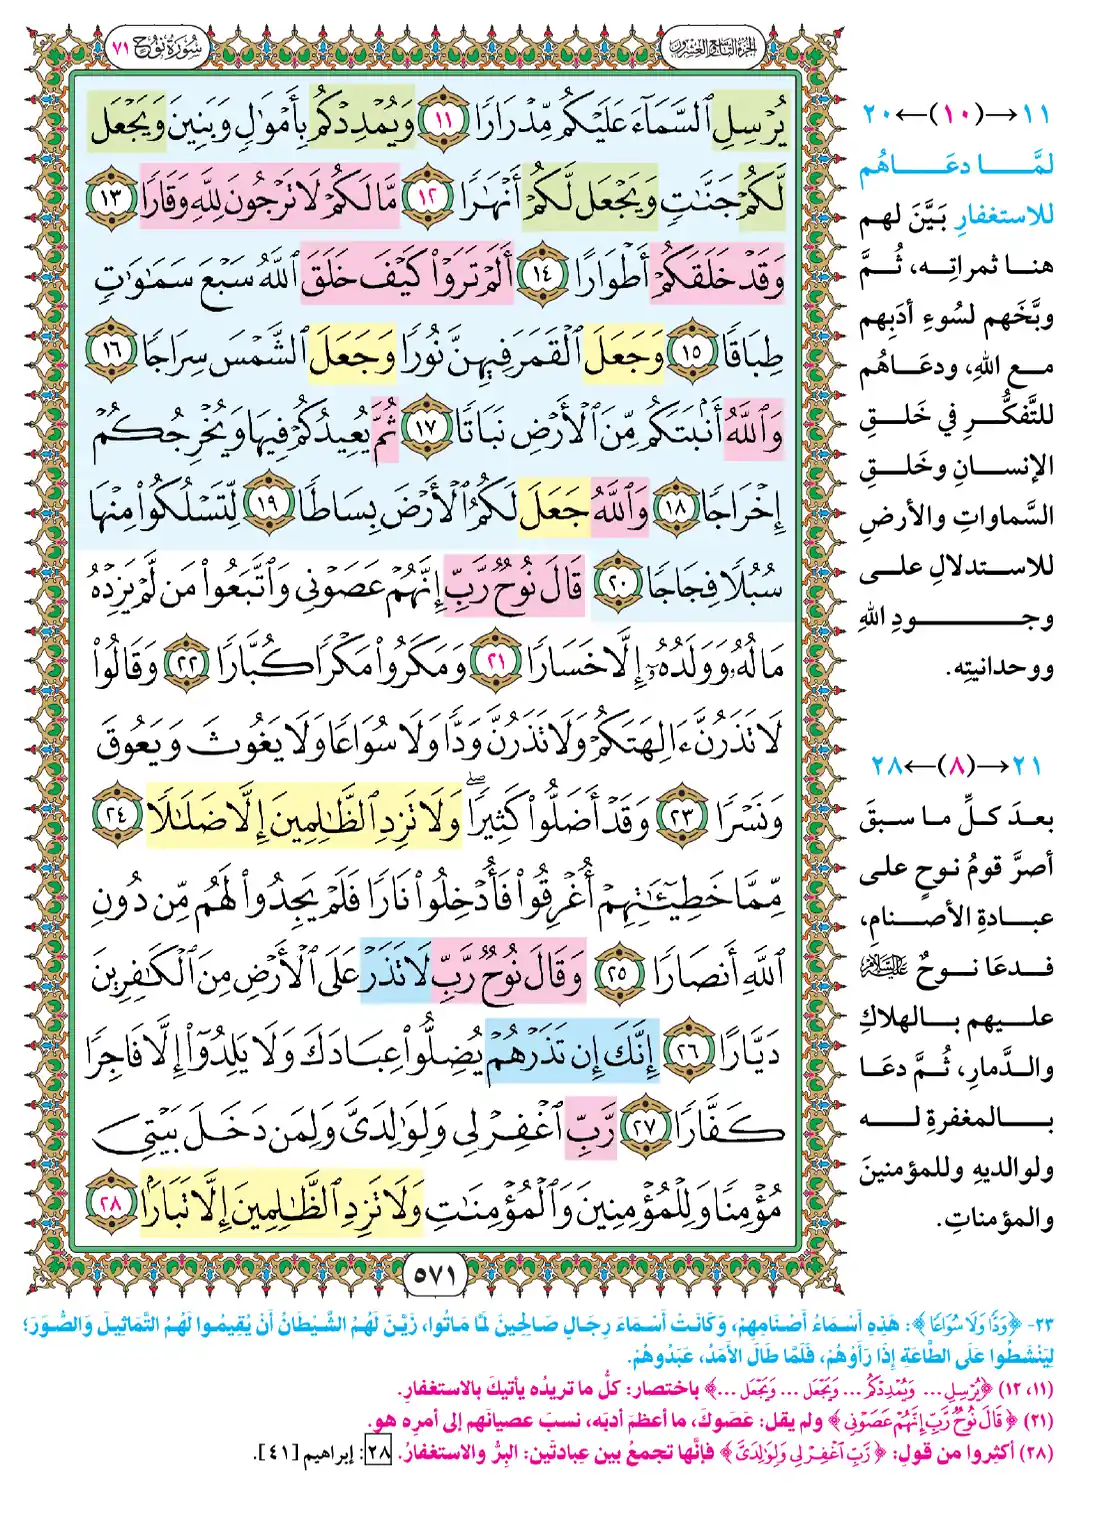 سُورَةُ نُوحٍ ٧١
الجزء التاسع والعشرون
يُرْسِلِ ٱلسَّمَآءَ عَلَيْكُم مِّدْرَارًا ١١ وَيُمْدِدْكُم بِأَمْوَٰلٍ وَبَنِينَ وَيَجْعَل
لَّكُمْ جَنَّٰتٍ وَيَجْعَل لَّكُمْ أَنْهَٰرًا ١٢ مَّا لَكُمْ لَا تَرْجُونَ لِلَّهِ وَقَارًا ١٣
وَقَدْ خَلَقَكُمْ أَطْوَارًا ١٤ أَلَمْ تَرَوْا۟ كَيْفَ خَلَقَ ٱللَّهُ سَبْعَ سَمَٰوَٰتٍ
طِبَاقًا ١٥ وَجَعَلَ ٱلْقَمَرَ فِيهِنَّ نُورًا وَجَعَلَ ٱلشَّمْسَ سِرَاجًا ١٦
وَٱللَّهُ أَنۢبَتَكُم مِّنَ ٱلْأَرْضِ نَبَاتًا ١٧ ثُمَّ يُعِيدُكُمْ فِيهَا وَيُخْرِجُكُمْ
إِخْرَاجًا ١٨ وَٱللَّهُ جَعَلَ لَكُمُ ٱلْأَرْضَ بِسَاطًا ١٩ لِّتَسْلُكُوا۟ مِنْهَا
سُبُلًا فِجَاجًا ٢٠ قَالَ نُوحٌ رَّبِّ إِنَّهُمْ عَصَوْنِى وَٱتَّبَعُوا۟ مَن لَّمْ يَزِدْهُ
مَالُهُۥ وَوَلَدُهُۥٓ إِلَّا خَسَارًا ٢١ وَمَكَرُوا۟ مَكْرًا كُبَّارًا ٢٢ وَقَالُوا۟
لَا تَذَرُنَّ ءَالِهَتَكُمْ وَلَا تَذَرُنَّ وَدًّا وَلَا سُوَاعًا وَلَا يَغُوثَ وَيَعُوقَ
وَنَسْرًا ٢٣ وَقَدْ أَضَلُّوا۟ كَثِيرًا ۖ وَلَا تَزِدِ ٱلظَّٰلِمِينَ إِلَّا ضَلَٰلًا ٢٤
مِّمَّا خَطِيٓـَٰٔتِهِمْ أُغْرِقُوا۟ فَأُدْخِلُوا۟ نَارًا فَلَمْ يَجِدُوا۟ لَهُم مِّن دُونِ
ٱللَّهِ أَنصَارًا ٢٥ وَقَالَ نُوحٌ رَّبِّ لَا تَذَرْ عَلَى ٱلْأَرْضِ مِنَ ٱلْكَٰفِرِينَ
دَيَّارًا ٢٦ إِنَّكَ إِن تَذَرْهُمْ يُضِلُّوا۟ عِبَادَكَ وَلَا يَلِدُوٓا۟ إِلَّا فَاجِرًا
كَفَّارًا ٢٧ رَّبِّ ٱغْفِرْ لِى وَلِوَٰلِدَىَّ وَلِمَن دَخَلَ بَيْتِىَ
مُؤْمِنًا وَلِلْمُؤْمِنِينَ وَٱلْمُؤْمِنَٰتِ وَلَا تَزِدِ ٱلظَّٰلِمِينَ إِلَّا تَبَارًۢا ٢٨
٥٧١
١١→(١٠)←٢٠
لمَّا دعَاهُم
للاستغفارِ بَيَّنَ لهم
هنا ثمراتِه، ثُمَّ
وبَّخَهم لسُوءِ أدَبِهم
مع اللهِ، ودعَاهُم
للتَّفكُّرِ في خَلقِ
الإنسانِ وخَلقِ
السَّماواتِ والأرضِ
للاستدلالِ على
وجودِ اللهِ
ووحدانيتِه.
٢١→(٨)←٢٨
بعدَ كلِّ ما سبقَ
أصرَّ قومُ نوحٍ على
عبادةِ الأصنامِ،
فدعَا نوحٌ عليه السلام
عليهم بالهلاكِ
والدَّمارِ، ثُمَّ دعَا
بالمغفرةِ له
ولوالديهِ وللمؤمنينَ
والمؤمناتِ.
٢٣- ﴿وَدًّا وَلَا سُوَاعًا﴾: هَذِهِ أَسْمَاءُ أَصْنَامِهِمْ، وَكَانَتْ أَسْمَاءَ رِجَالٍ صَالِحِينَ لَمَّا مَاتُوا، زَيَّنَ لَهُمُ الشَّيْطَانُ أَنْ يُقِيمُوا لَهُمُ التَّمَاثِيلَ وَالصُّوَرَ؛
لِيَنْشَطُوا عَلَى الطَّاعَةِ إِذَا رَأَوْهُمْ، فَلَمَّا طَالَ الأَمَدُ، عَبَدُوهُمْ.
(١١، ١٢) ﴿يُرْسِلِ ... وَيُمْدِدْكُمْ ... وَيَجْعَل ... وَيَجْعَل ...﴾ باختصار: كلُّ ما تريدُه يأتيكَ بالاستغفارِ.
(٢١) ﴿قَالَ نُوحٌ رَّبِّ إِنَّهُمْ عَصَوْنِى﴾ ولم يقل: عَصَوكَ، ما أعظمَ أدبَه، نسبَ عصيانَهم إلى أمرِه هو.
(٢٨) أكثِروا من قولِ: ﴿رَّبِّ ٱغْفِرْ لِى وَلِوَٰلِدَىَّ﴾ فإنَّها تجمعُ بين عِبادتَين: البِرُّ والاستغفارُ. ٢٨: إبراهيم [٤١].